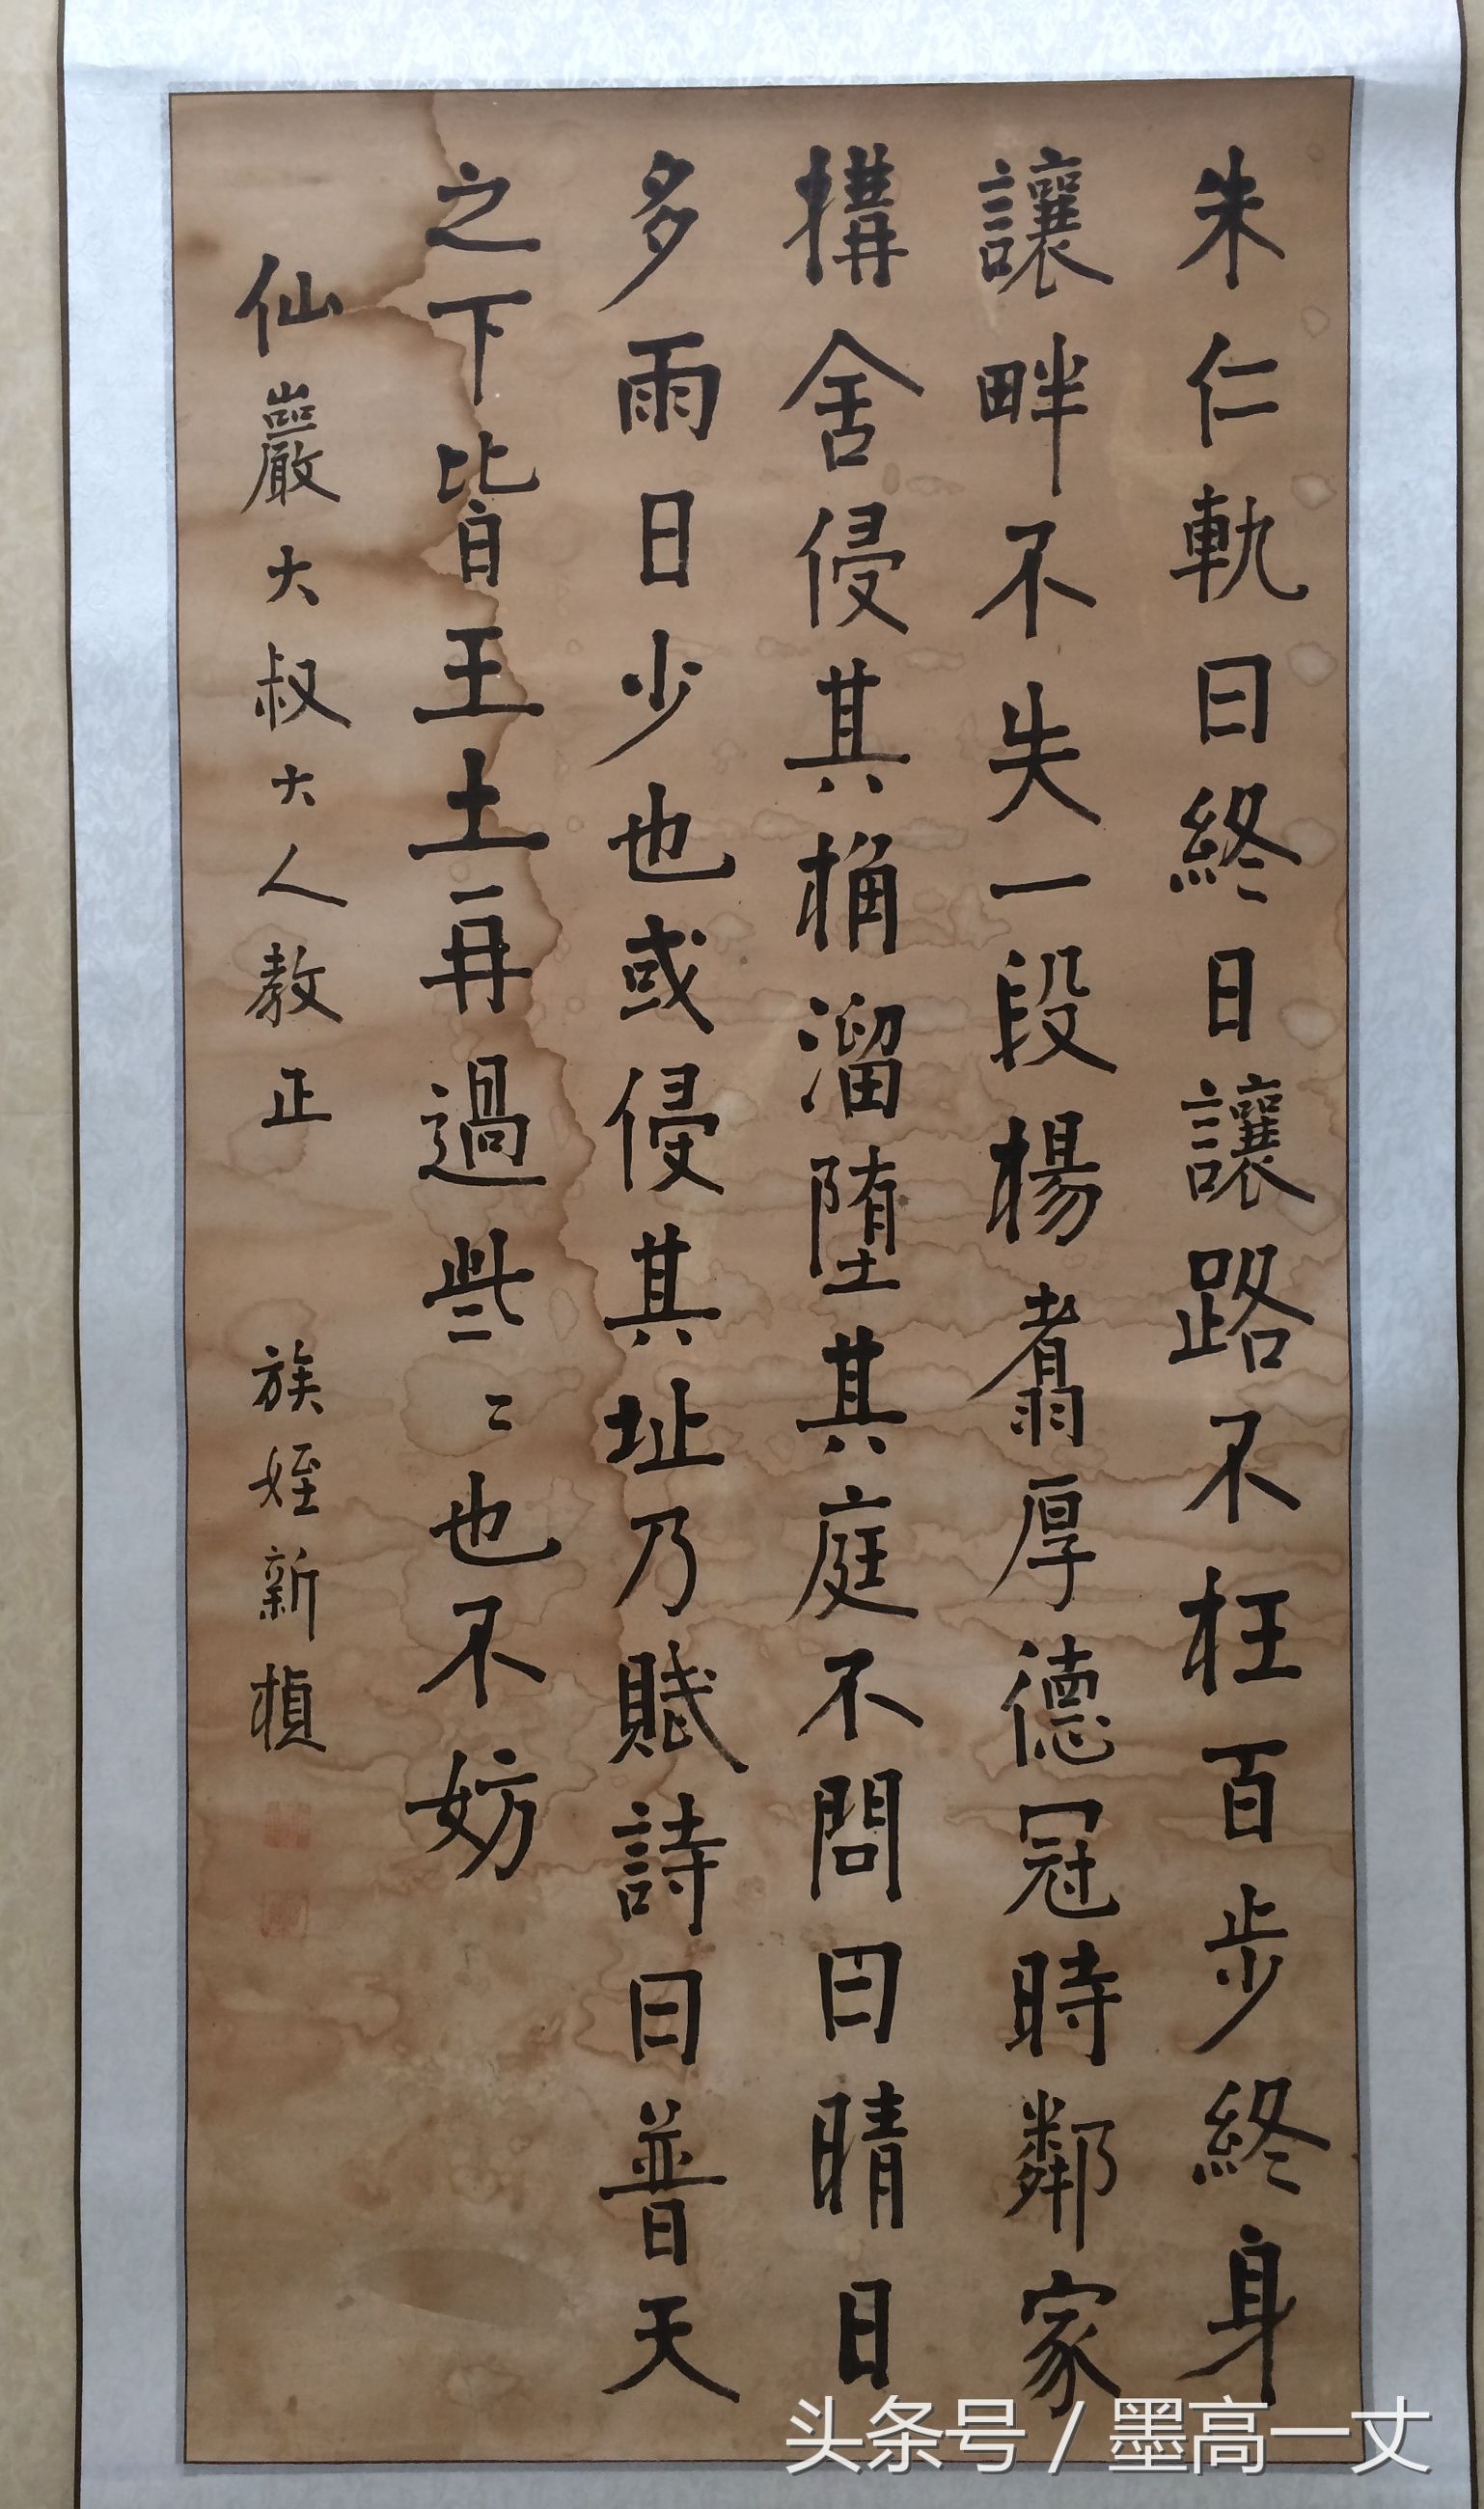 朱仁軌曰終日讓路不枉百步終身
讓畔不失一段楊翥厚德冠時鄰家
構舍侵其桷溜墮其庭不問曰晴日
多雨日少也或侵其址乃賦詩曰普天
之下皆王土再過些〻也不妨
仙巖大叔大人教正
族姪新楨
头条号 / 墨高一丈